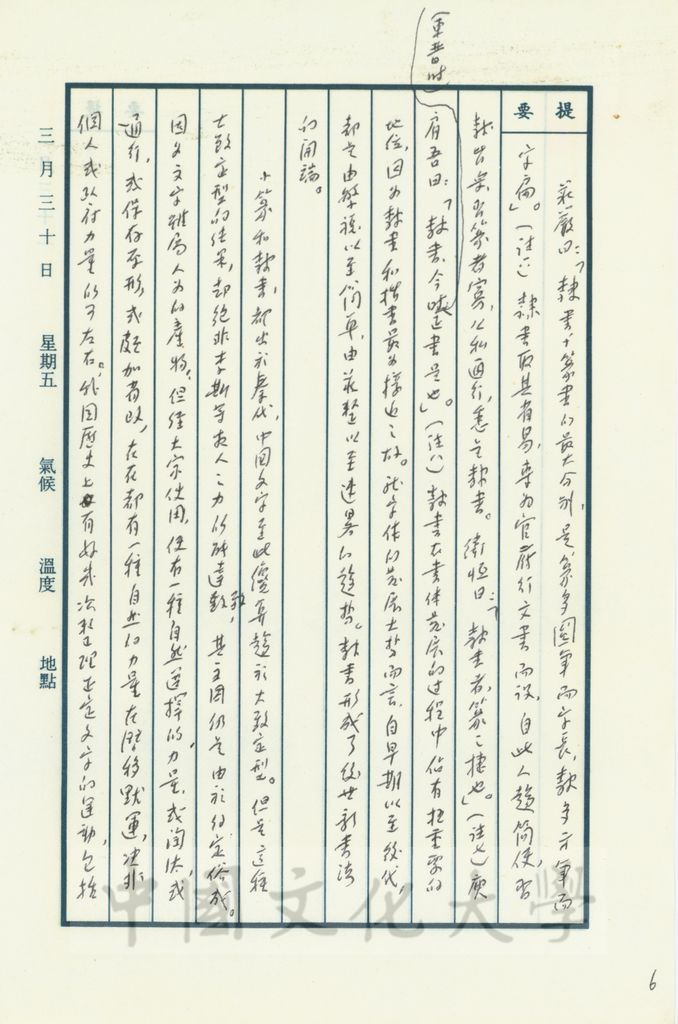 提要
莊嚴曰：「隸書于篆書的最大分別，是篆多圓筆而字長，隸多方筆而
字扁」。（註六）隸書取其省易，專為官府行文書而設，自此人趨簡便，習
隸者眾，習篆者寡，公私通行，悉是隸書。衛恒曰：「隸書者，篆之捷也」。（註七）庾
肩吾曰：「隸書，今時正書是也」。（註八）隸書在書体發展的過程中佔有極重要的
地位，因為隸書和楷書最為接近之故。就字体的發展大勢而言，自早期以至後代，
都是由繁複以至簡單，由嚴整以至速畧的趨勢。隸書形成了後世新書法
的開端。
小篆和隸書，都出於秦代，中國文字至此便算趨於大致定型。但是這種
大致定型的結果，却絕非李斯等數人之力所能達致，其主因仍是由於約定俗成。
因為文字雖屬人為的產物，但經大家使用，便有一種自然選擇的力量，或淘汰，或
通行，或保存原形，或頗加省改，在在都有一種自然的力量在潛移默運，决非
個人或政府力量的可左右。外國歷史上也有好幾次整理並定文字的運動，包括
三月三十日 星期五 氣候 溫度 地點
中國文化大學
6